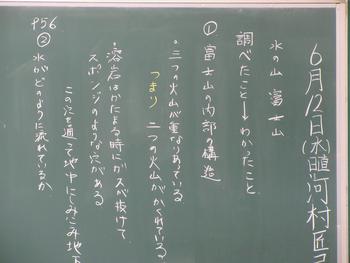 6月12日(水)日直河村匠
水の山 富士山
調べたこと→わかったこと
① 富士山の内部の構造
・三つの火山が重なりあっている
つまり 二つの火山がかくれている
・溶岩はかたまる時にガスが抜けて
スポンジのような穴がある
この穴を通って地中にしみこみ地下
P56
② 水がどのように流れているか